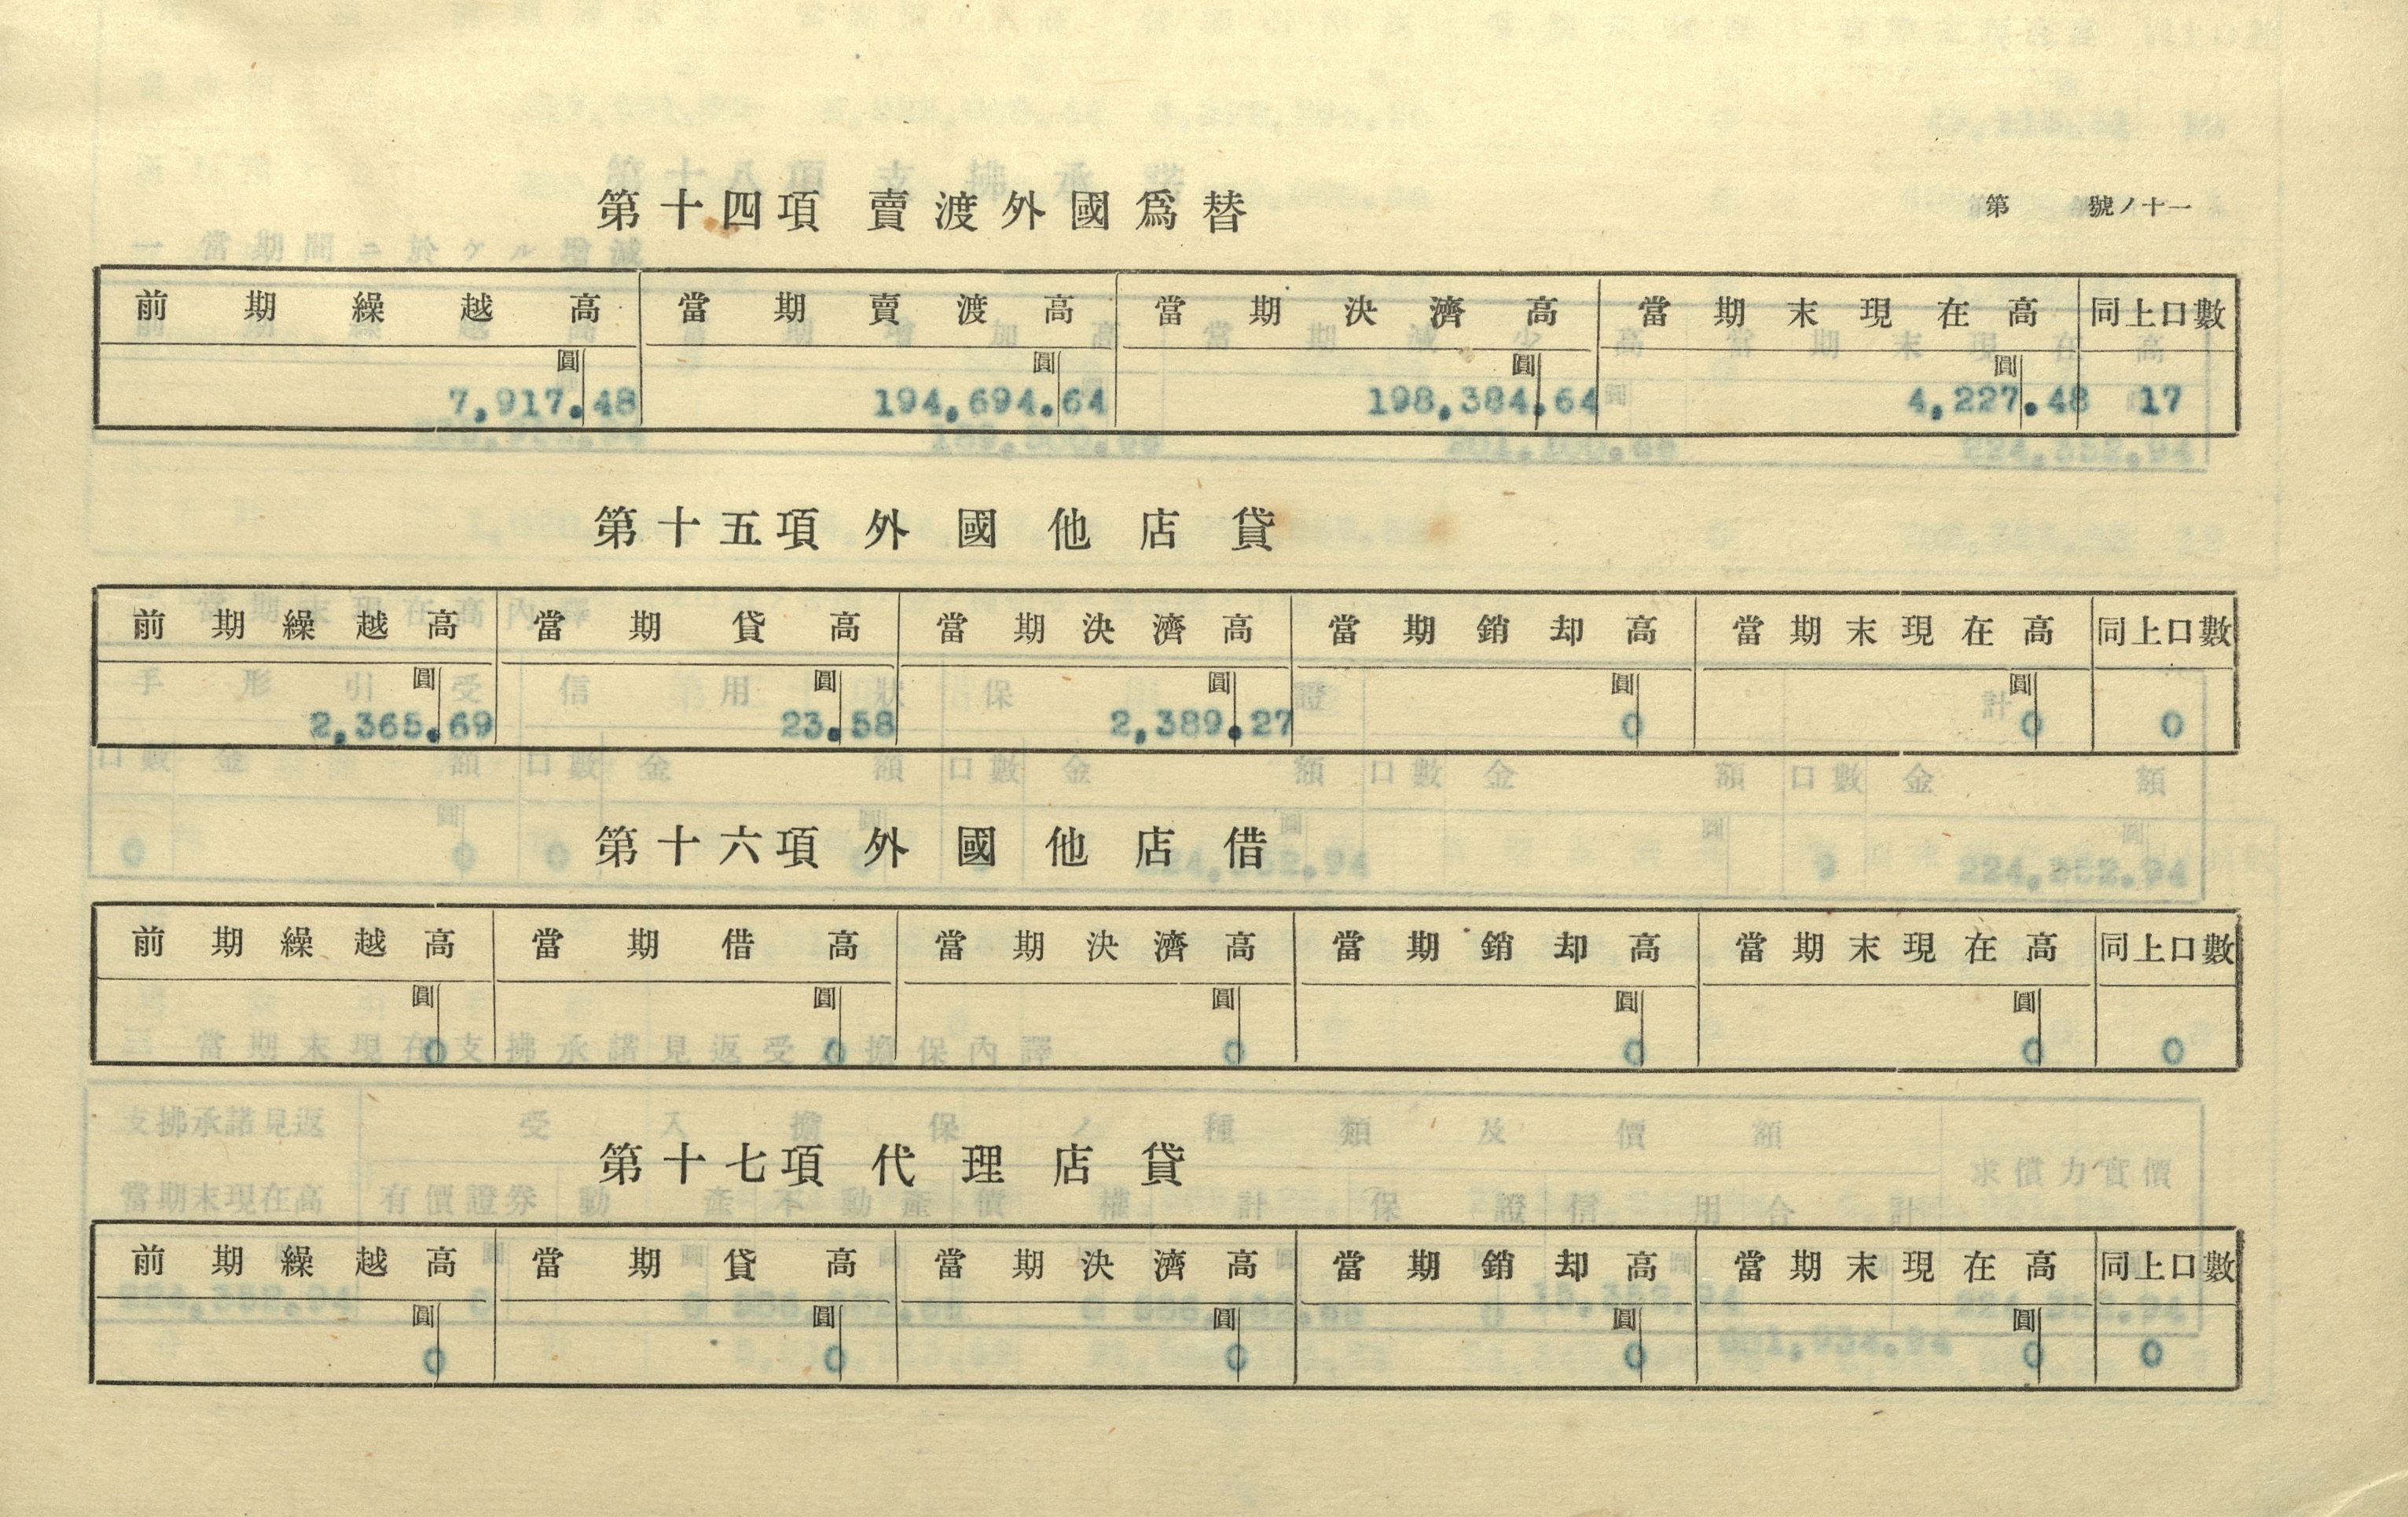 第十四項 賣渡外國爲替
第 號ノ十一
前期繰越高 當期賣渡高 當期決濟高 當期末現在高 同上口數
圓 圓 圓 圓
7,917.48 194,694.64 198,384.64 4,227.48 17
第十五項 外國他店貸
前期繰越高 當期貸高 當期決濟高 當期銷却高 當期末現在高 同上口數
圓 圓 圓 圓 圓
2,365.69 23.58 2,389.27 0 0 0
第十六項 外國他店借
前期繰越高 當期借高 當期決濟高 當期銷却高 當期末現在高 同上口數
圓 圓 圓 圓 圓
0 0 0 0 0 0
第十七項 代理店貸
前期繰越高 當期貸高 當期決濟高 當期銷却高 當期末現在高 同上口數
圓 圓 圓 圓 圓
0 0 0 0 0 0